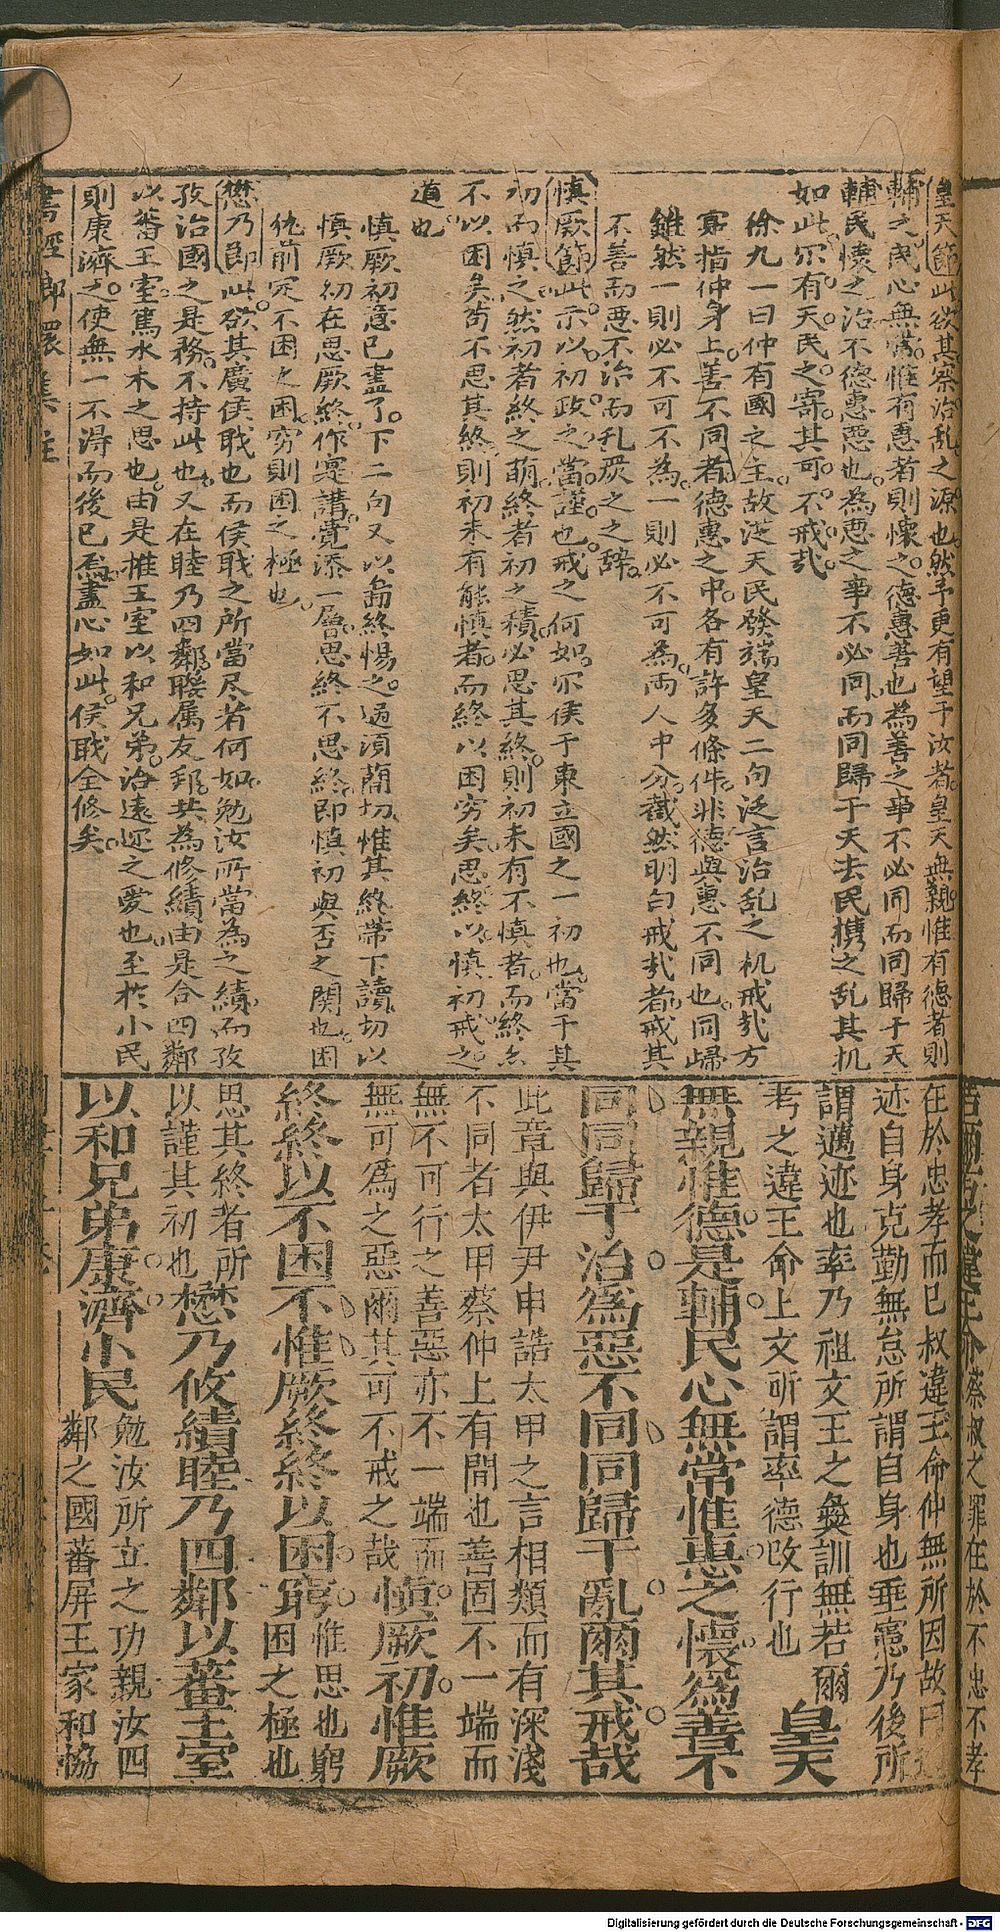 皇天節此欲其察治乱之源也然予更有望于汝者皇天無親惟有德者則
輔之民心無常惟有惠者則懷之德惠善也為善之事不必同而同歸于天
輔民懷之治不德惠惡也為惡之事不必同而同歸于天去民携之乱其机
如此尔有天民之寄其可不戒哉
徐九一曰仲有國之主故從天民發端皇天二句泛言治乱之机戒哉方
寔指仲身上善不同者德惠之中各有許多條件非德與惠不同也同歸
雖然一則必不可不為一則必不可為両人中分截然明白戒哉者戒其
不善而悪不治而乱之之辞
慎厥節此示以初政之當謹也戒之何如尔侯于東立國之一初也當于其
初而慎之然初者終之萌終者初之積必思其終則初未有不慎者而終亦
不以困矣茍不思其終則初未有能慎者而終以困穷矣思終以慎初戒之
道也
慎厥初意已盡了下二句又以終惕之過湏切惟其終帶下讀切以
慎厥初在思厥終作寔講覚添一層思終不思終即慎初與否之関也困
前不困之困穷則困之極也
懋乃節此欲其廣侯戝也而侯戝之所當尽者何如勉汝所當為之績而攷
攷治國之是務不持此也又在睦乃四鄰聫属友邦共為修績由是合四鄰
以蕃王室篤水木之思也由是推王室以和兄弟治遠迩之愛也至於小民
則康濟之使無一不淂而後已焉盡心如此侯戝全修矣
書經集註
若爾考之違王命蔡叔之罪在於不忠不孝
在於忠孝而已叔違王命仲無所因故曰
迹自身克勤無怠所謂自身也垂憲乃後所
謂邁迹也率乃祖文王之彝訓無若爾
考之違王命上文所謂率德改行也
皇天
無親惟德是輔民心無常惟惠之懷為善不
同同歸于治為惡不同同歸于亂爾其戒哉
此章與伊尹申誥太甲之言相類而有深淺
不同者太甲蔡仲上有間也善固不一端而
無不可行之善惡亦不一端而
無可為之惡爾其可不戒之哉
慎厥初惟厥
終終以不困不惟厥終終以困窮
惟思也窮
困之極也
思其終者所
以謹其初也
懋乃攸績睦乃四鄰以蕃王室
以和兄弟康濟小民
勉汝所立之功親汝四
鄰之國蕃屏王家和協
Digitalisierung gefördert durch die Deutsche Forschungsgemeinschaft - DFG